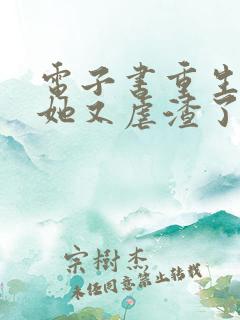 电子书重生
她又虐渣了
宗樹杰
未经同意禁止转载